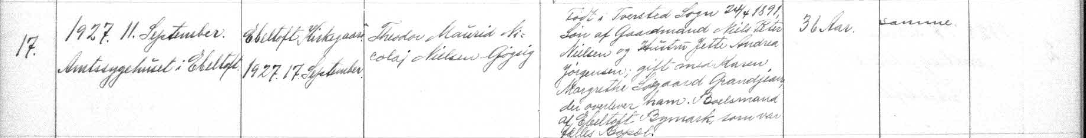 17.
1927. 11. September.
Amtssygehuset i Ebeltoft
Ebeltoft Kirkegaard
1927. 17. September.
Theodor Maurid Ni-
colaj Nielsen Gjøgsig
Født i Tversted Sogn 24/4 1891,
Søn af Gaardmand Niels Peter
Nielsen og Hustru Jette Andrea
Jørgensen; gift med Karen
Margrethe Søgaard Grandjean,
der overlever ham. Boelsmand
af Ebeltoft Bymark, som var
fælles Bopæl.
36 Aar.
samme.